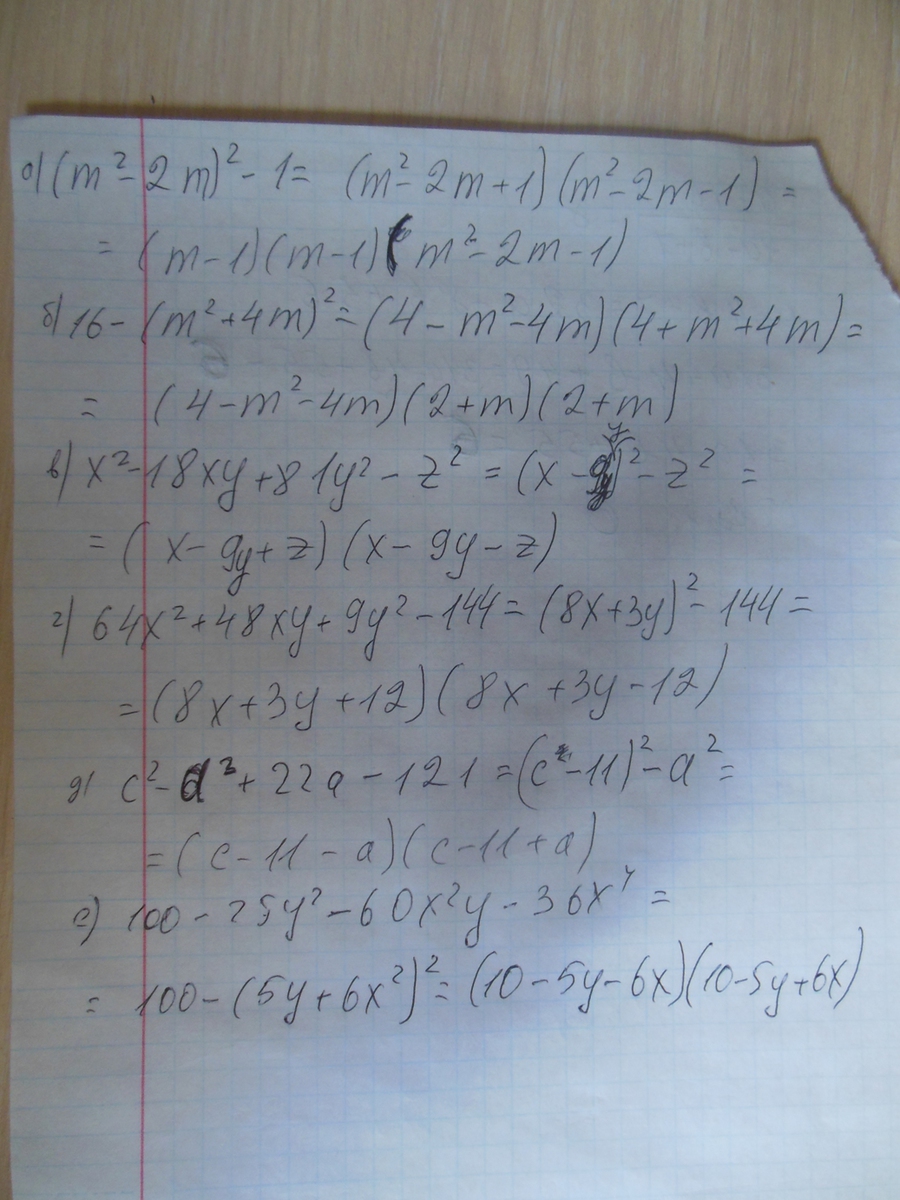 а) (m² - 2m)² - 1 = (m² - 2m + 1)(m² - 2m - 1) =
= (m - 1)(m - 1)(m² - 2m - 1)
б) 16 - (m² + 4m)² = (4 - m² - 4m)(4 + m² + 4m) =
= (4 - m² - 4m)(2 + m)(2 + m)
в) x² - 18xy + 81y² - z² = (x - 9y)² - z² =
= (x - 9y + z)(x - 9y - z)
г) 64x² + 48xy + 9y² - 144 = (8x + 3y)² - 144 =
= (8x + 3y + 12)(8x + 3y - 12)
д) c² - a² + 22a - 121 = (c - 11)² - a² =
= (c - 11 - a)(c - 11 + a)
е) 100 - 25y² - 60x²y - 36x⁴ =
= 100 - (5y + 6x²)² = (10 - 5y - 6x)(10 - 5y + 6x)